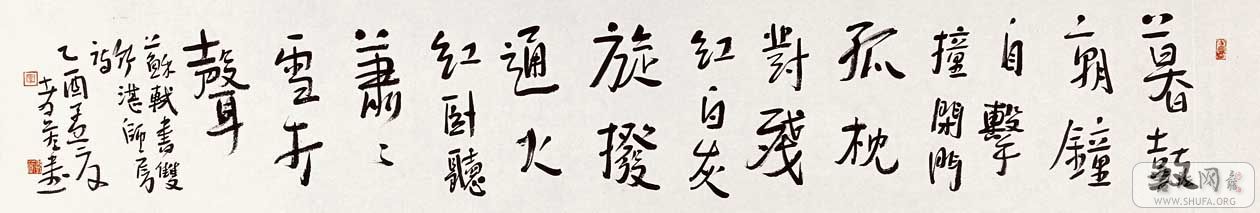 暮鼓
朝鐘
自擊
撞閑門
孤枕
對殘
红白灰
旋撥
通火
紅卧聽
蕭〻
雪打
聲
蘇軾書雙
竹湛師房
詩
乙酉孟夏
書法网
WWW.SHUFA.ORG